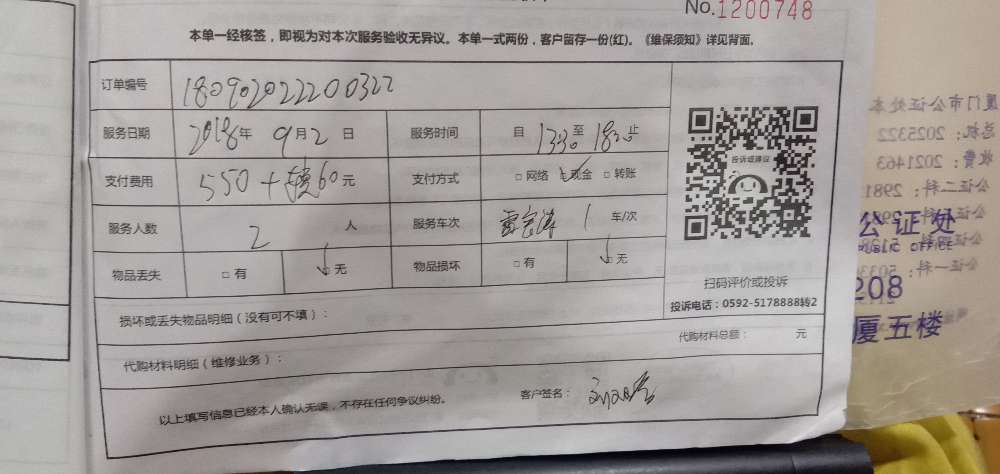 No.1200748
本单一经核签，即视为对本次服务验收无异议。本单一式两份，客户留存一份(红)。《维保须知》详见背面。
订单编号 180902022200322
服务日期 2018年 9月2日 服务时间 自 13:30 至 18:30 止
支付费用 550+ 60元 支付方式 □ 网络 □ 现金 □ 转账
服务人数 2 人 服务车次 1 车/次
物品丢失 □ 有 □ 无 物品损坏 □ 有 □ 无
投诉或建议
扫码评价或投诉
投诉电话：0592-5178888转2
损坏或丢失物品明细（没有可不填）：
代购材料明细（维修业务）： 代购材料总额： 元
以上填写信息已经本人确认无误，不存在任何争议纠纷。 客户签名：
厦门市公证处本
总机：2025322
收费：2021463
公证二科：2981
公证处
公证一科：5033
208
厦五楼